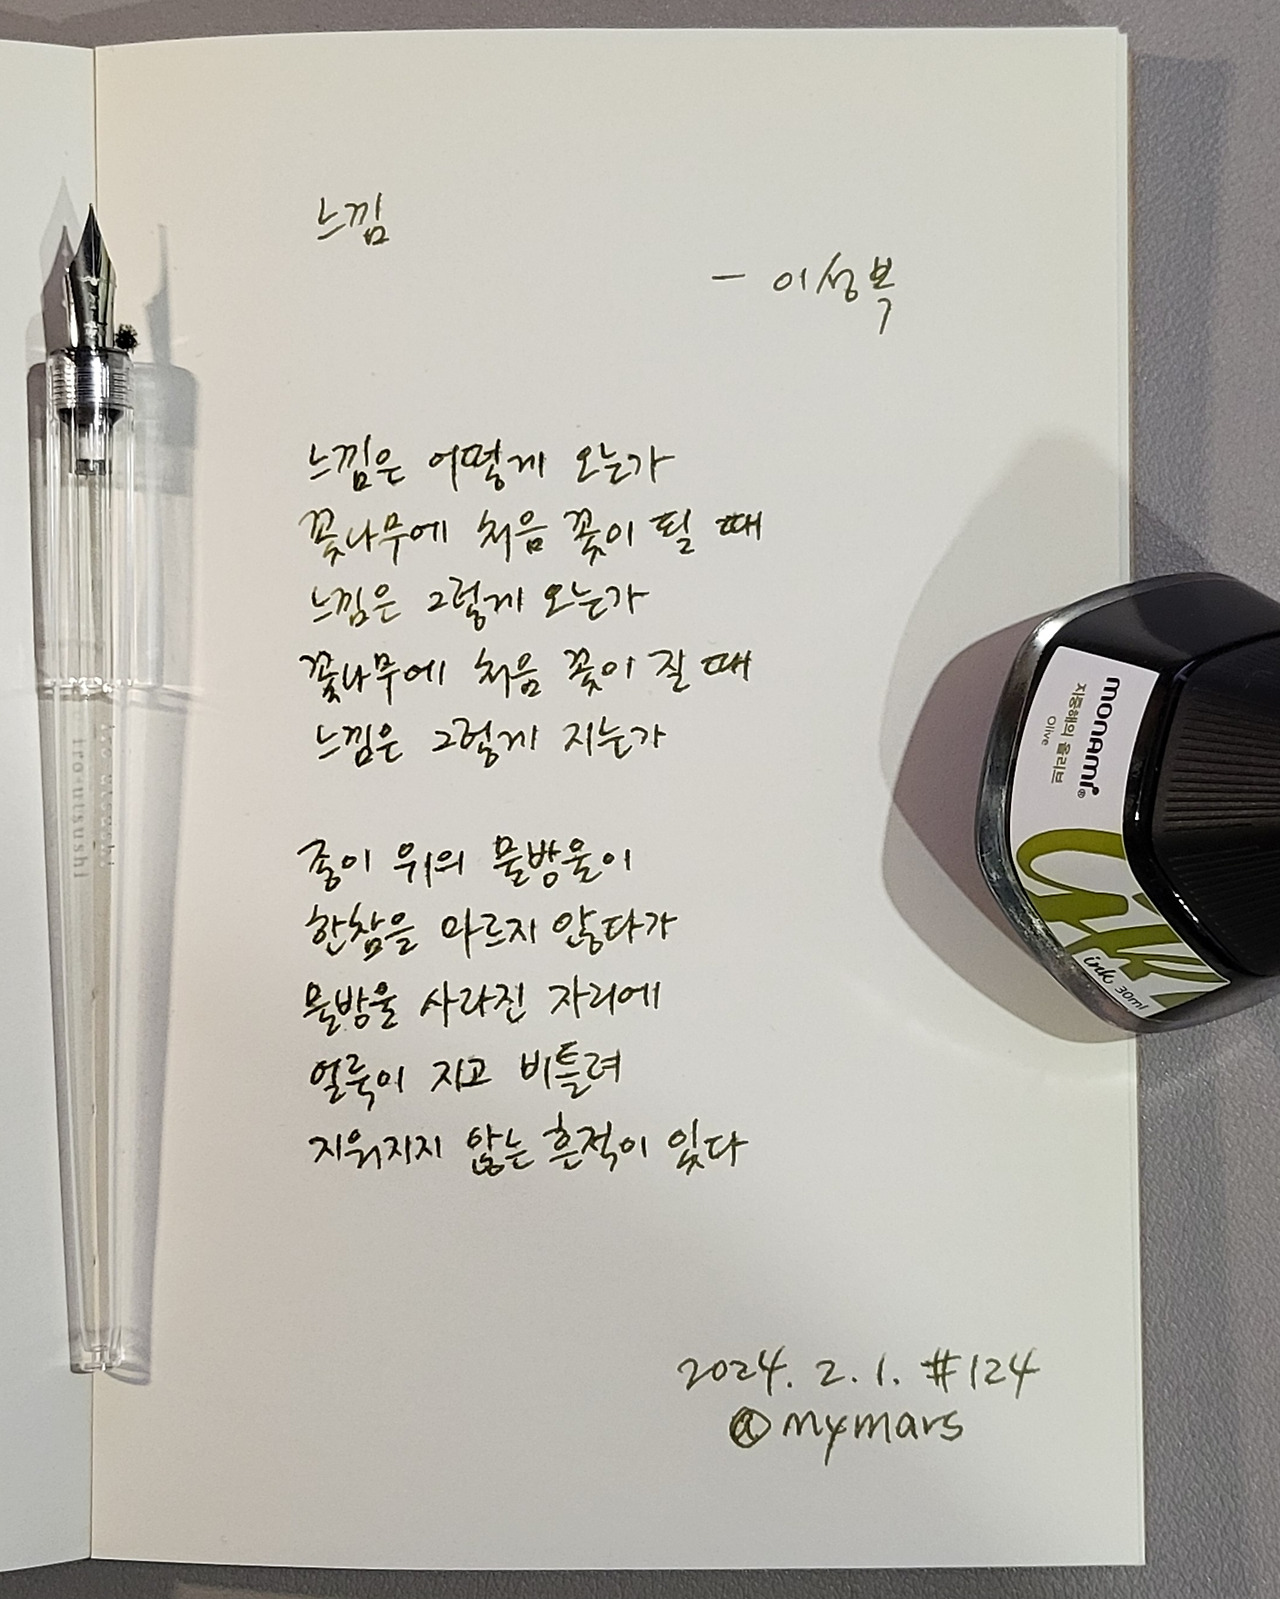 느낌
- 이성복
느낌은 어떻게 오는가
꽃나무에 처음 꽃이 필 때
느낌은 그렇게 오는가
꽃나무에 처음 꽃이 질 때
느낌은 그렇게 지는가
종이 위의 물방울이
한참을 마르지 않다가
물방울 사라진 자리에
얼룩이 지고 비틀려
지워지지 않는 흔적이 있다
2024. 2. 1. #124
@mymars
iro-utsushi
monami®
지중해의 올리브
Olive
ink 30ml